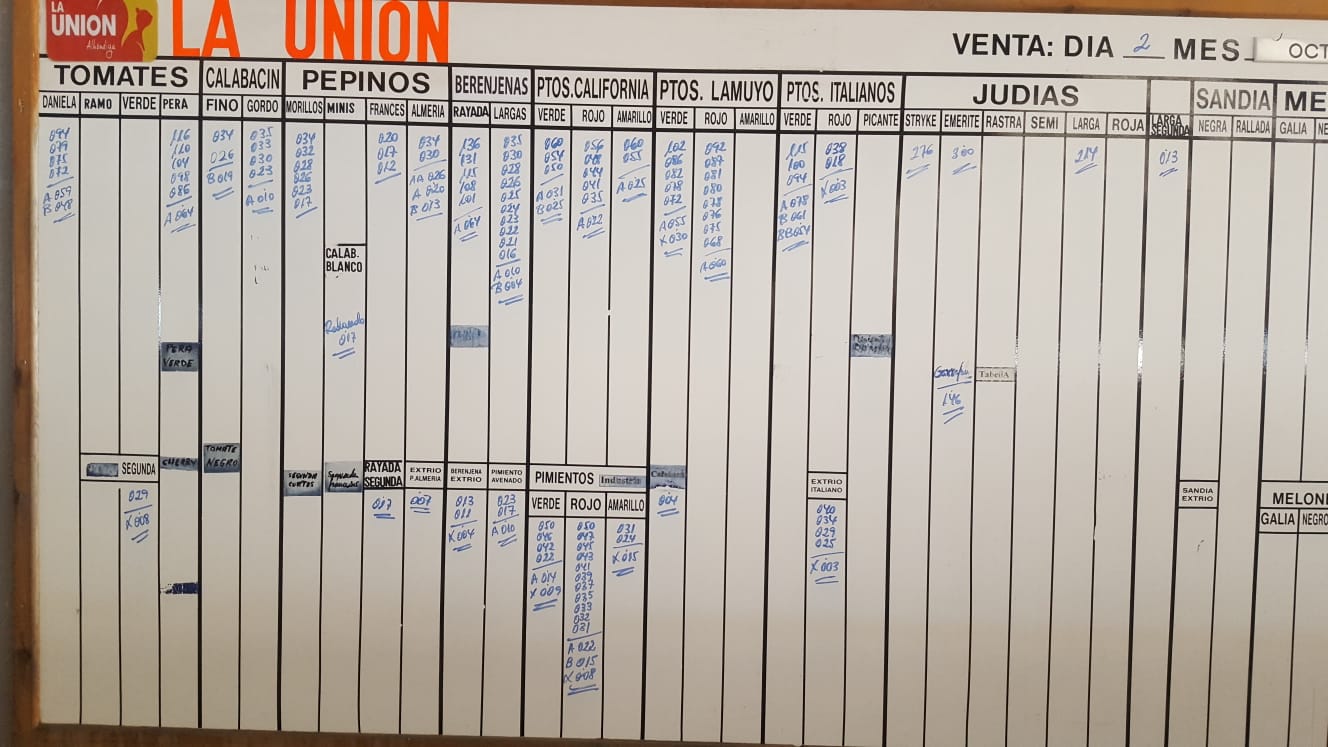 LA
UNION
Alhóndiga
LA UNION
VENTA: DIA 2 MES OCT
TOMATES
CALABACIN
PEPINOS
BERENJENAS
PTOS.CALIFORNIA
PTOS. LAMUYO
PTOS. ITALIANOS
JUDIAS
SANDIA
ME
DANIELA
094
079
075
072
A 059
B 048
RAMO
VERDE
PERA
116
110
104
098
086
A 064
FINO
034
026
B 019
GORDO
035
033
030
023
A 010
MORILLOS
034
032
028
026
023
017
MINIS
FRANCES
020
017
012
ALMERIA
034
030
AA 026
A 020
B 013
RAYADA
136
131
115
108
101
A 064
LARGAS
035
030
028
026
025
024
023
022
021
016
A 010
B 004
VERDE
060
054
050
A 031
B 025
ROJO
056
048
044
041
035
A 022
AMARILLO
060
055
A 025
VERDE
102
086
082
078
072
A 055
X 030
ROJO
092
087
081
080
078
076
075
068
A 060
AMARILLO
VERDE
115
100
094
A 078
B 061
BB 054
ROJO
038
018
X 003
PICANTE
STRYKE
276
EMERITE
300
RASTRA
SEMI
LARGA
214
ROJA
LARGA
SEGUNDA
013
NEGRA
RALLADA
GALIA
NE
CALAB.
BLANCO
Redondo
017
PERA
VERDE
TabellA
146
SEGUNDA
029
X 008
CHERRY
TOMATE
NEGRO
SEGUNDA
CORTOS
Segunda
RAYADA
SEGUNDA
017
EXTRIO
P.ALMERIA
007
BERENJENA
EXTRIO
013
011
X 004
PIMIENTO
AVENADO
023
017
A 010
PIMIENTOS Industria
VERDE
050
046
042
022
A 014
X 009
ROJO
050
047
045
043
041
039
037
035
033
032
031
A 022
B 015
X 008
AMARILLO
031
024
X 015
004
EXTRIO
ITALIANO
040
034
029
025
X 003
SANDIA
EXTRIO
MELONE
GALIA
NEGRO